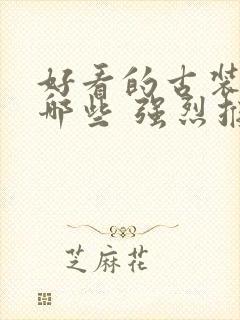 好看的古装
哪些 强烈推
芝麻花